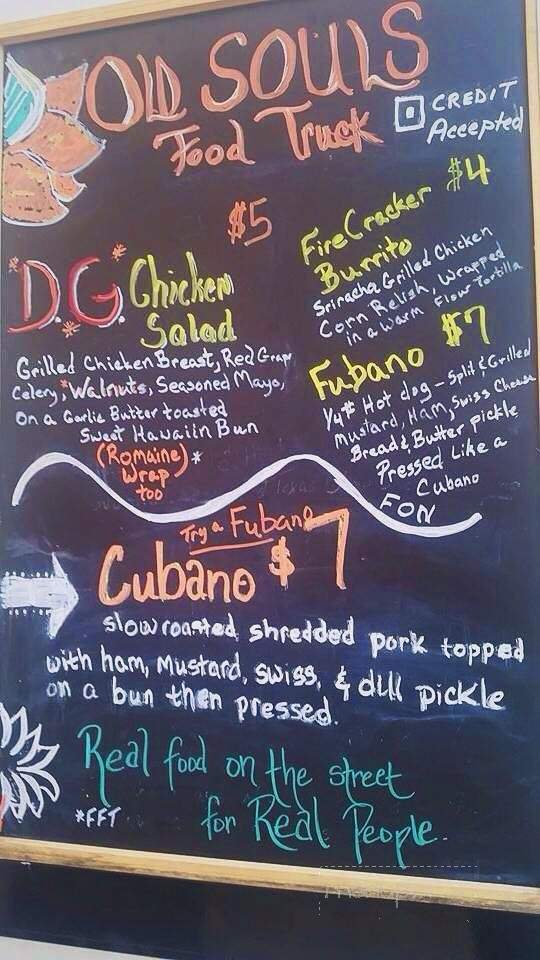 OLD SOULS
Food Truck
CREDIT
Accepted
$5
*D.G.* Chicken
Salad
Grilled Chicken Breast, Red Grap
Celery, *Walnuts, Seasoned Mayo,
On a Garlic Butter toasted
Sweet Hawaiin Bun
(Romaine)*
Wrap
too
$4
FireCracker
Burrito
Sriracha Grilled Chicken
Corn Relish, Wrapped
in a warm Flour Tortilla
Fubano $7
1/4# Hot dog - Split & Grilled
Mustard, Ham, Swiss Cheese
Bread & Butter pickle
Pressed Like a
Cubano
FON
Try a Fubano
Cubano $7
slow roasted shredded pork topped
with ham, Mustard, swiss, & dill pickle
on a bun then pressed.
Real food on the street
for Real People.
*FFT